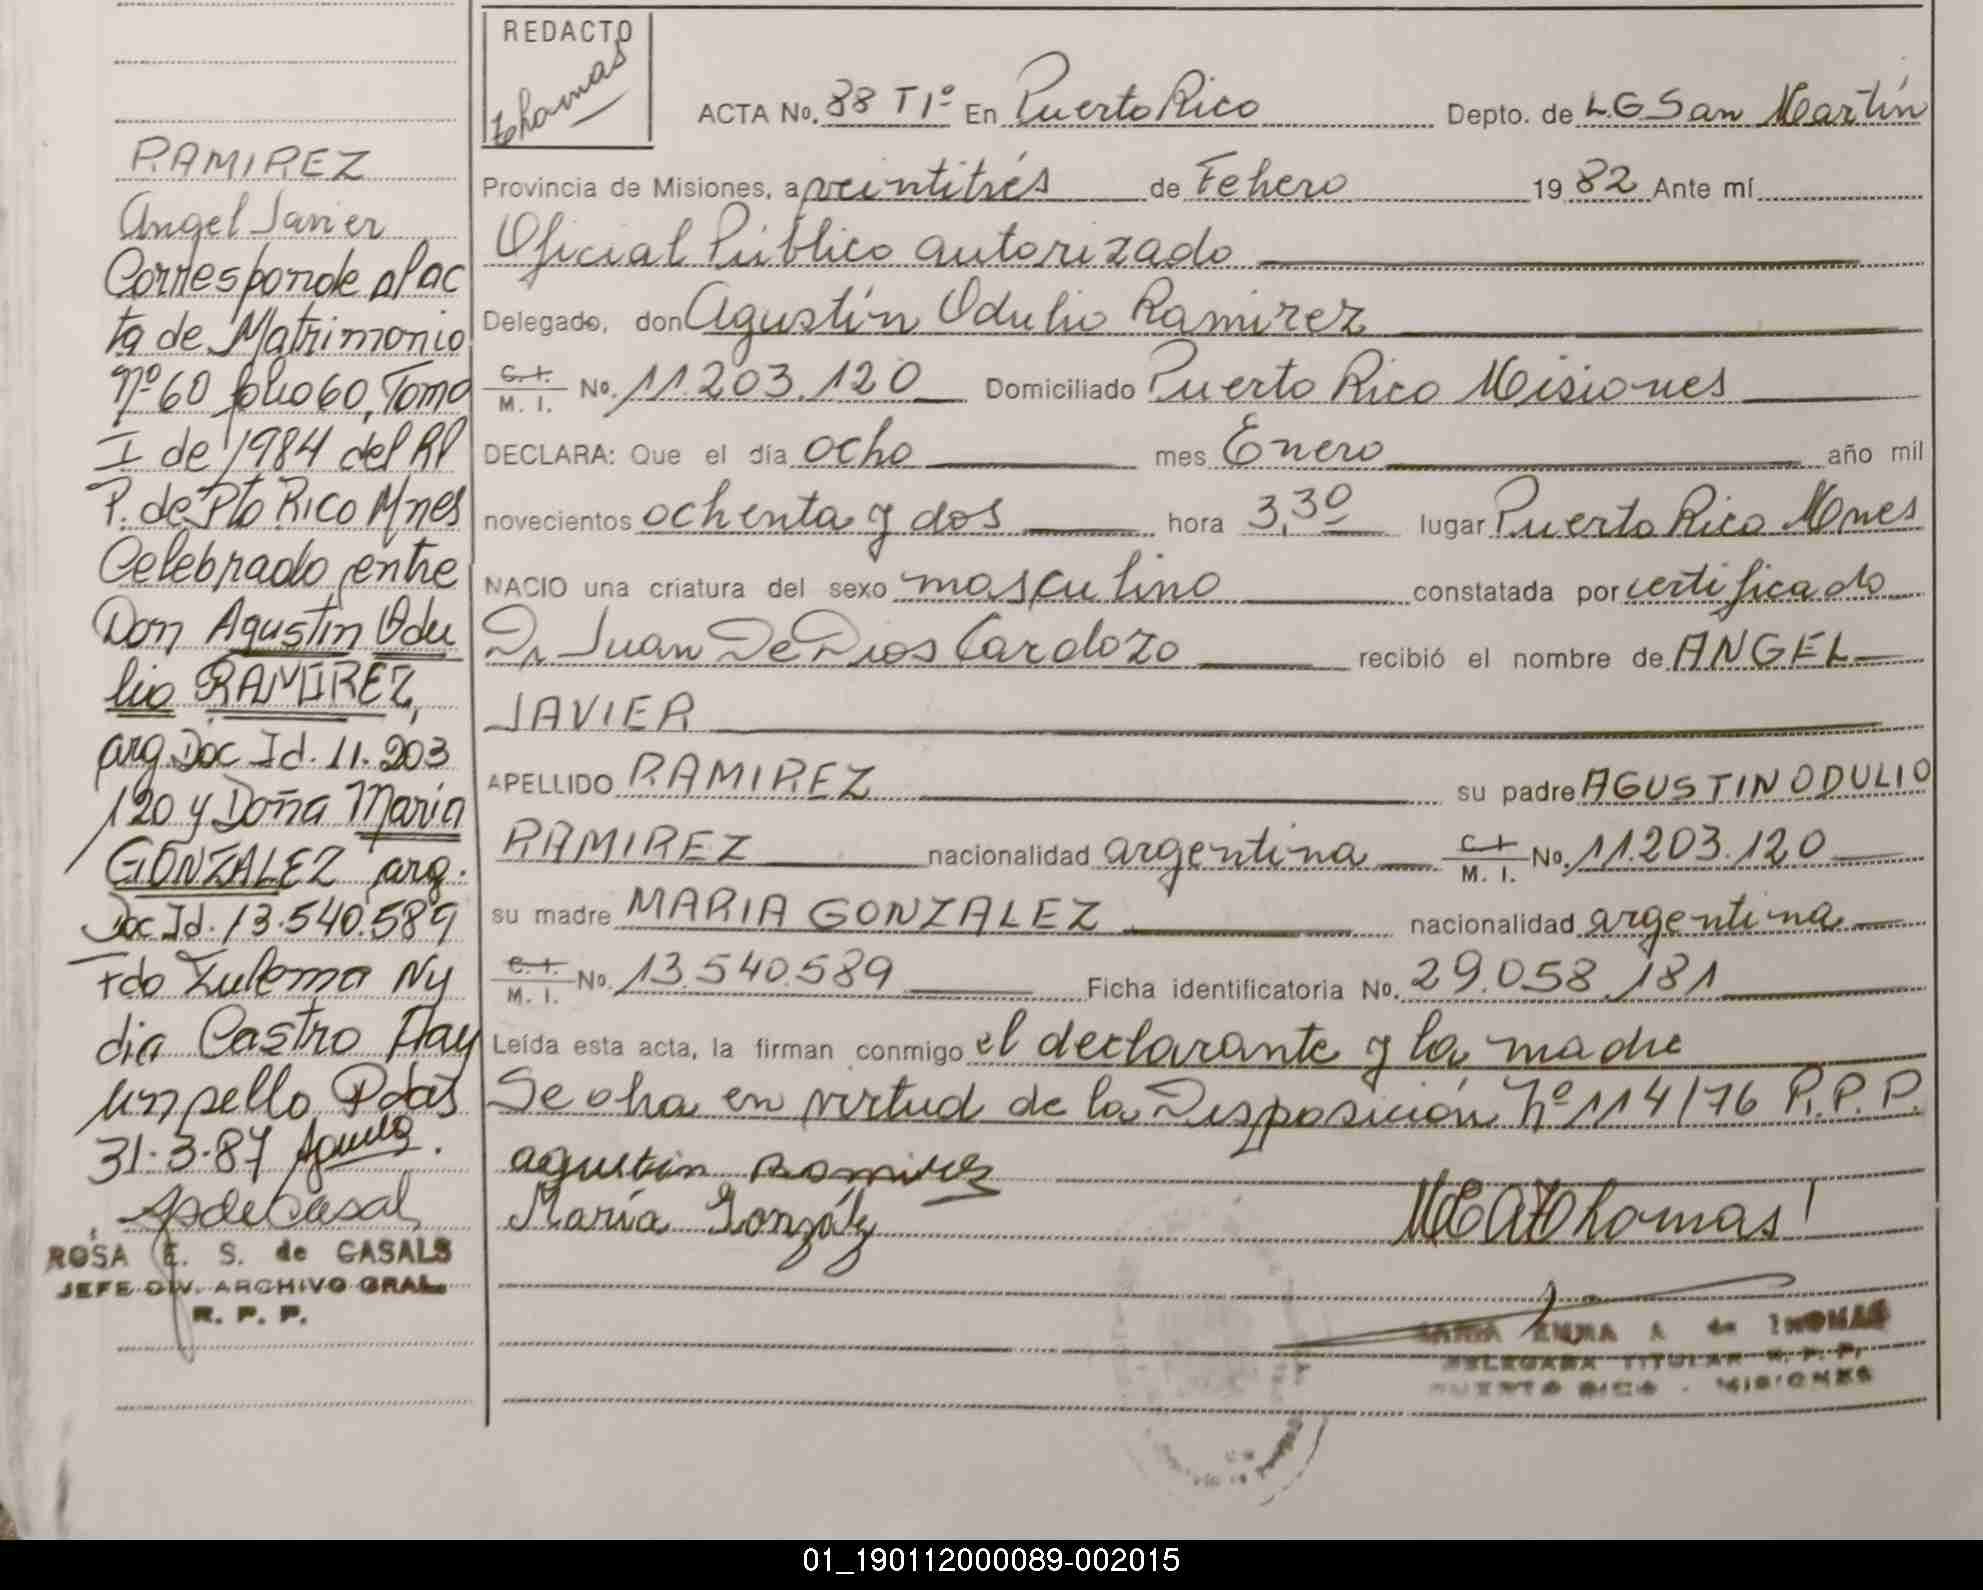 RAMIREZ
Angel Javier
Corresponde al ac
ta de Matrimonio
Nº 60 folio 60, Tomo
I de 1984 del RP
P. de Pto Rico Mnes
Celebrado entre
Don Agustin Odu
lio RAMIREZ,
arg. Doc Id. 11.203
120 y Doña Maria
GONZALEZ arg.
Doc Id. 13.540.589
Fdo Zulema Ny
dia Castro Hay
un sello Pdas
31-3-87
ROSA E. S. de CASALS
JEFE DIV. ARCHIVO GRAL.
R. P. P.
REDACTO
Thomas
ACTA No. 88 T Iº En Puerto Rico Depto. de L G San Martín
Provincia de Misiones, a veintitrés de Febero 19 82 Ante mí
Oficial Público autorizado
Delegado, don Agustín Odulio Ramirez
C. I. M. I. No. 11.203.120 Domiciliado Puerto Rico Misiones
DECLARA: Que el día ocho mes Enero año mil
novecientos ochenta y dos hora 3,30 lugar Puerto Rico Mnes
NACIO una criatura del sexo masculino constatada por certificado
Dr Juan De Dios Cardozo recibió el nombre de ANGEL
JAVIER
APELLIDO RAMIREZ su padre AGUSTIN ODULIO
RAMIREZ nacionalidad argentina C. I. M. I. No. 11.203.120
su madre MARIA GONZALEZ nacionalidad argentina
C. I. M. I. No. 13.540.589 Ficha identificatoria No. 29.058.181
Leída esta acta, la firman conmigo el declarante y la madre
Se obra en virtud de la Disposición Nº 114/76 R.P.P.
agustin Ramirez
María González
MEA Thomas
MARIA EMMA A de THOMAS
DELEGADA TITULAR R. P. P.
PUERTO RICO - MISIONES
01_190112000089-002015